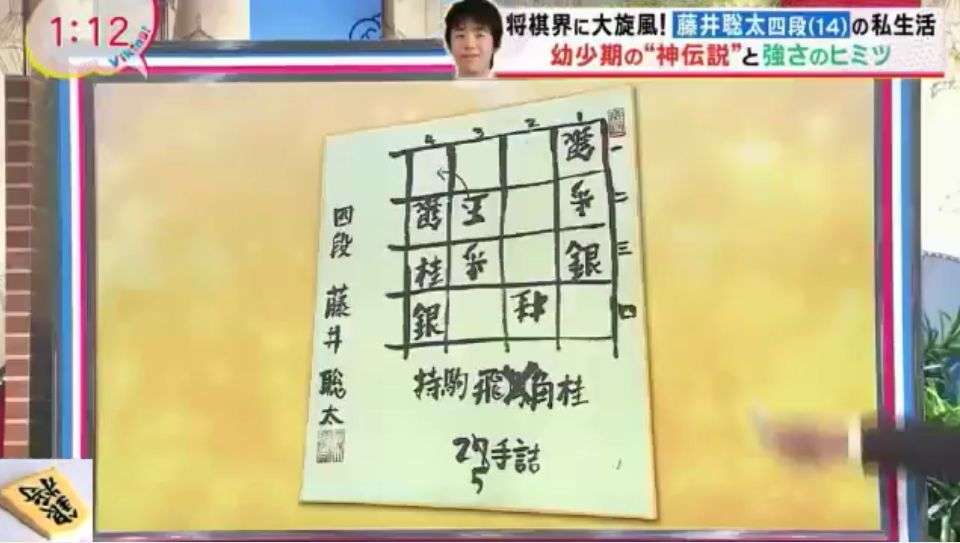 1:12
将棋界に大旋風！藤井聡太四段(14)の私生活
幼少期の“神伝説”と強さのヒミツ
4 3 2 1
銀 一
銀 王 歩 二
桂 歩 銀 三
銀 四
四段 藤井聡太
持駒 飛角桂
27手詰
5